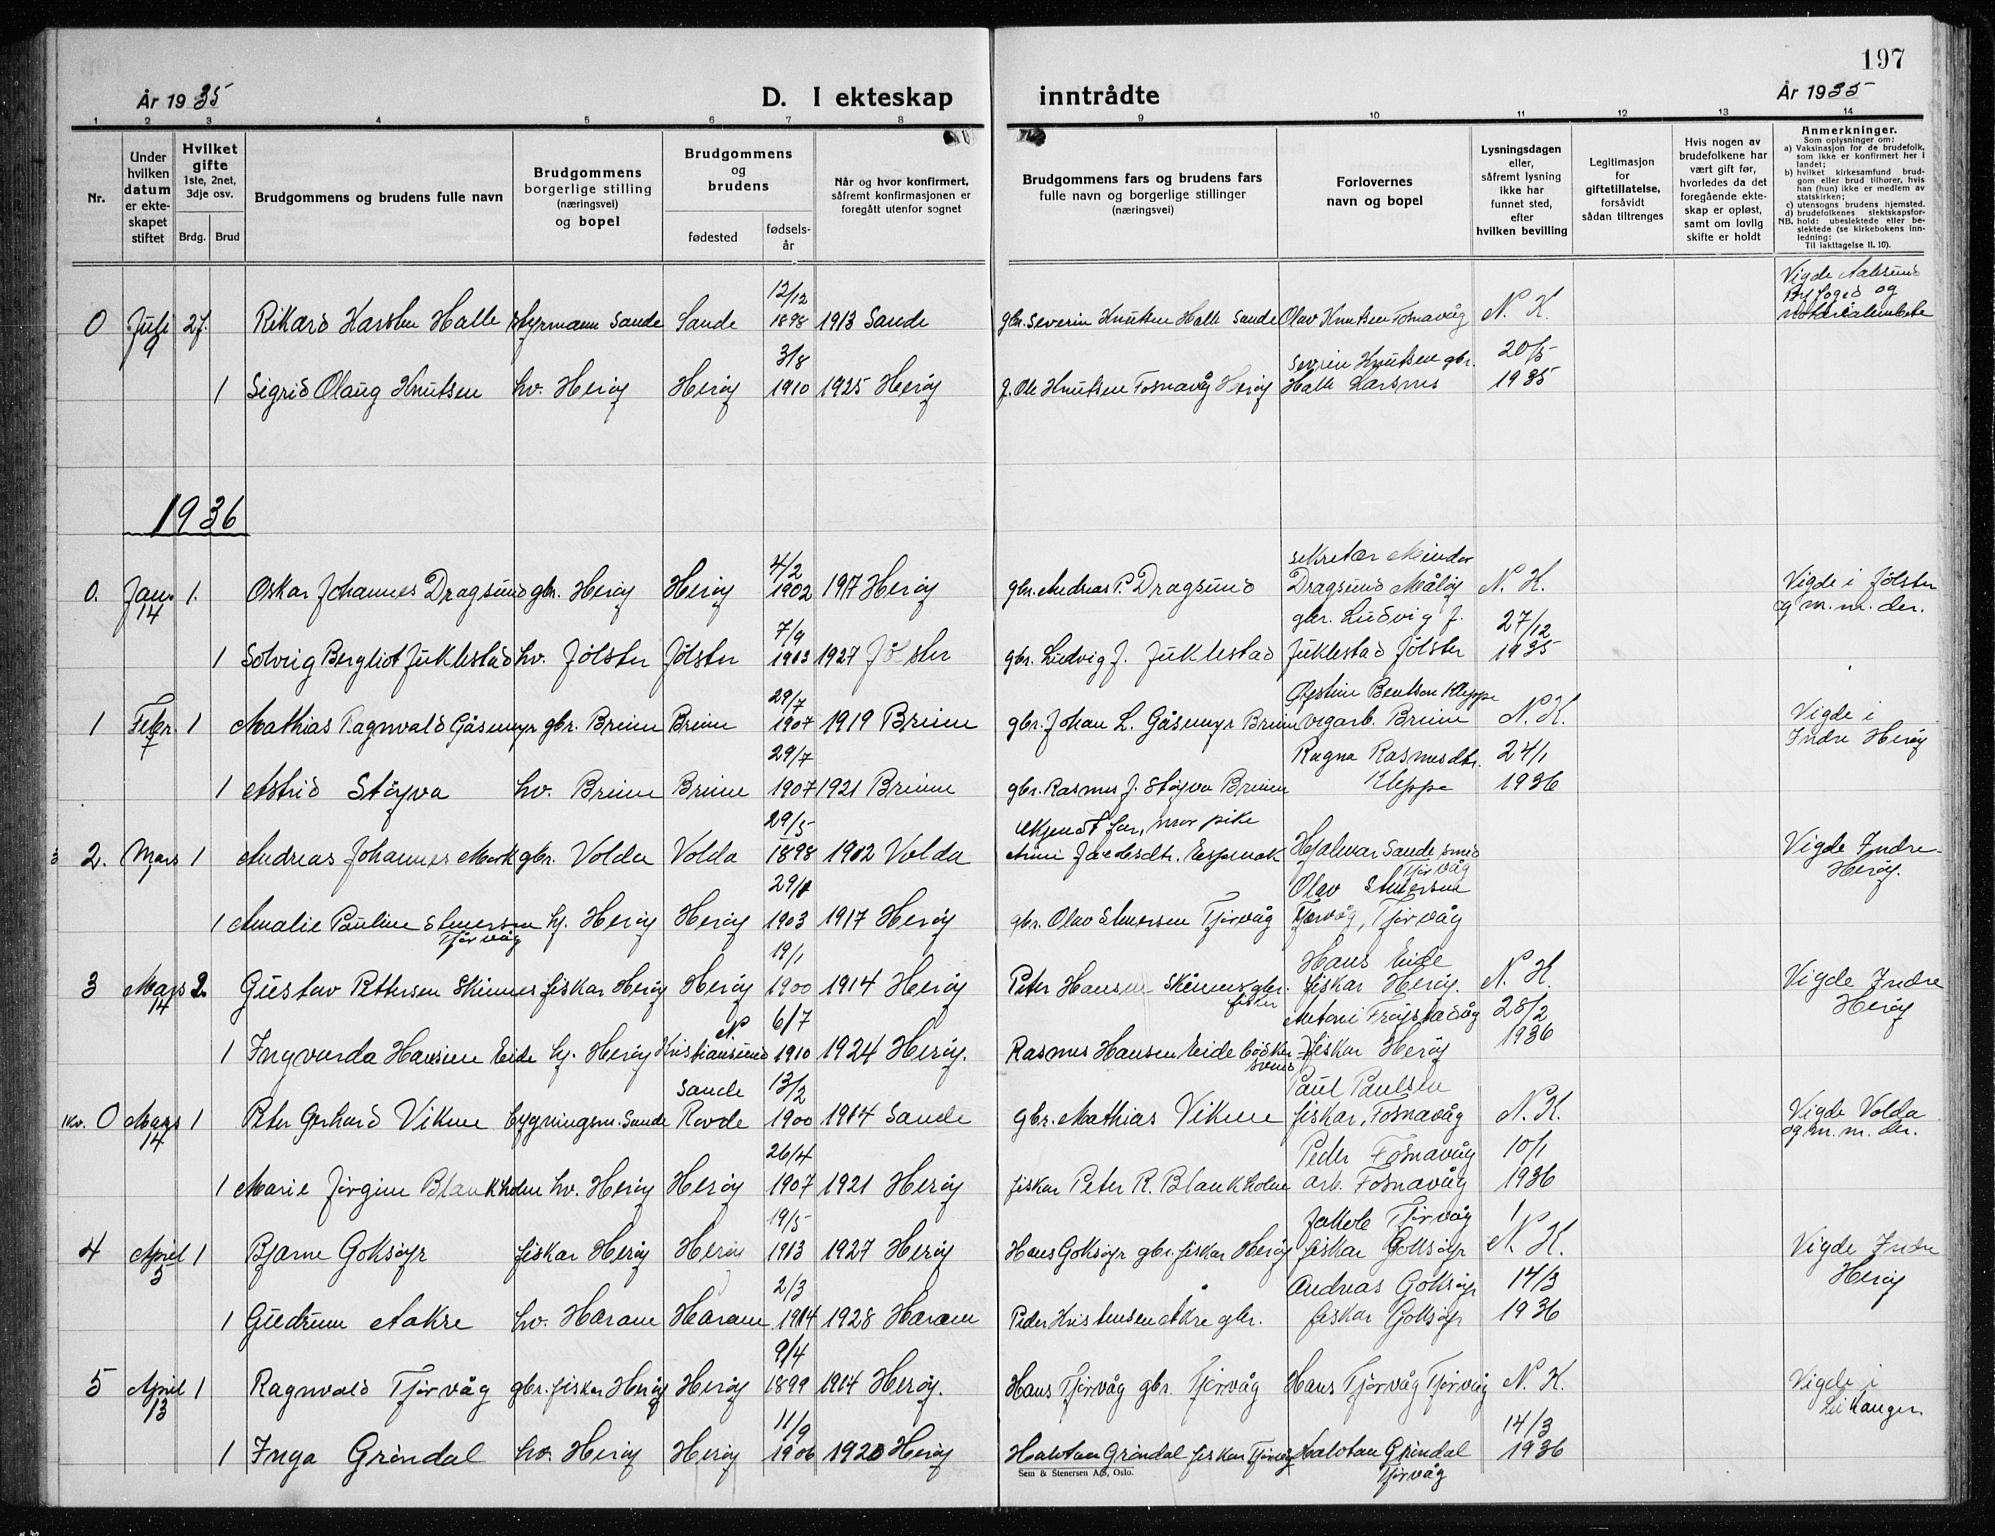 197
År 1935
D. I ekteskap inntrådte
År 1935
1 2 3 4 5 6 7 8 9 10 11 12 13 14
Nr.
Under
hvilken
datum
er ekte-
skapet
stiftet
Hvilket
gifte
1ste, 2net,
3dje osv.
Brdg. Brud
Brudgommens og brudens fulle navn
Brudgommens
borgerlige stilling
(næringsvei)
og bopel
Brudgommens
og
brudens
fødested
fødsels-
år
Når og hvor konfirmert,
såfremt konfirmasjonen er
foregått utenfor sognet
Brudgommens fars og brudens fars
fulle navn og borgerlige stillinger
(næringsvei)
Forlovernes
navn og bopel
Lysningsdagen
eller,
såfremt lysning
ikke har
funnet sted,
efter
hvilken bevilling
Legitimasjon
for
giftetillatelse,
forsåvidt
sådan tiltrenges
Hvis nogen av
brudefolkene har
vært gift før,
hvorledes da det
foregående ekte-
skap er opløst,
samt om lovlig
skifte er holdt
Anmerkninger.
Som oplysninger om:
a) Vaksinasjon for de brudefolk,
som ikke er konfirmert her i
landet;
b) hvilket kirkesamfund brud-
gom eller brud tilhører, hvis
han (hun) ikke er medlem av
statskirken;
c) utensogns brudens hjemsted.
d) brudefolkenes slektskapsfor-
NB. hold: ubeslektede eller be-
slektede (se kirkebokens inn-
ledning:
Til iakttagelse II. 10).
0 Juli 9 2 f. Rikard Karsten Halle styrmann Sande Sande 12/12 1898 1913 Sande gbr. Severin Knutsen Halle Sande Olav Knutsen Fosnavåg N. K. Vigde Aalesund
Byfoged og
1 Sigrid Olaug Knutsen hv. Herøy Herøy 3/8 1910 1925 Herøy f. Ole Knutsen Fosnavåg Herøy Severin Knutsen gbr.
Halle Larsnes 20/5 1935
1936
0. Jan. 14 1. Oskar Johannes Dragsund gbr. Herøy Herøy 4/2 1902 1917 Herøy gbr. Andreas P. Dragsund sekretær Meindor
Dragsund Måløy N. K. Vigde i Jølster
og m. m. der.
1 Solveig Bergliot Juklestad hv. Jølster Jølster 7/9 1913 1927 Jølster gbr. Ludvig J. Juklestad gbr. Ludvig J.
Juklestad Jølster 27/12 1935
1 Febr. 7 1 Mathias Ragnvald Gåsemyr gbr. Breim Breim 29/7 1907 1919 Breim gbr. Johan L. Gåsemyr Breim Øystein Bentson Kleppe
vegarb. Breim N. K. Vigde i
Indre Herøy
1 Astrid Støyva hv. Breim Breim 29/7 1907 1921 Breim gbr. Rasmus J. Støyva Breim Ragna Rasmusdtr.
Kleppe 24/1 1936
2. Mars 1 Andreas Johannes Mork gbr. Volda Volda 29/5 1898 1912 Volda Ukjendt far, mor pike
Anne Jacobsdtr. Espenak Hjalmar Sande smed
Tjørvåg Vigde Indre
Herøy.
1 Amalie Pauline Elmersen
Tjørvåg hj. Herøy Herøy 29/1 1903 1917 Herøy gbr. Olav Elmersen Tjørvåg Olav Elmersen
Tjørvåg, Tjørvåg
3 Mars 14 2. Gustav Pettersen Skinnes fiskar Herøy Herøy 19/1 1900 1914 Herøy Peter Hansen Skinnes gbr.
fisker Hans Eide
fiskar Herøy. N. K. Vigde Indre
Herøy
1 Ingvarda Hansine Eide hj. Herøy Kristiansund N 6/7 1910 1924 Herøy. Rasmus Hansen Eide bødker
svend Antoni Frøystadvåg
fiskar Herøy 28/2 1936
0 Mars 14 1 Peter Gerhard Vikene bygningsm. Sande Sande
Rovde 13/2 1900 1914 Sande gbr. Mathias Vikene Paul Paulsen
fiskar, Fosnavåg N. K. Vigde Volda
og m. m. der.
1 Marie Jørgine Blankholm hv. Herøy Herøy 26/4 1907 1921 Herøy fiskar Peter R. Blankholm Peder Fosnavåg
arb. Fosnavåg 10/1 1936
4 April 5 1 Bjarne Goksøyr fiskar Herøy Herøy 19/5 1913 1927 Herøy Hans Goksøyr gbr. fiskar Herøy Jakob Tjørvåg
fiskar Goksøyr N. K. Vigde Indre
Herøy
1 Gudrun Aakre hv. Haram Haram 2/3 1914 1928 Haram Peder Kristensen Åkre gbr. Andreas Goksøyr
fiskar Goksøyr 14/3 1936
5 April 13 1 Ragnvald Tjørvåg gbr. fiskar Herøy Herøy 9/4 1899 1914 Herøy. Hans Tjørvåg gbr. Tjørvåg Hans Tjørvåg Tjørvåg N. K. Vigde i
Leikanger.
1 Inga Grøndal hv. Herøy Herøy 11/9 1906 1920 Herøy Halvtan Grøndal fiskar Tjørvåg Halvtan Grøndal
Tjørvåg 14/3 1936
Sem & Stenersen A/S, Oslo.